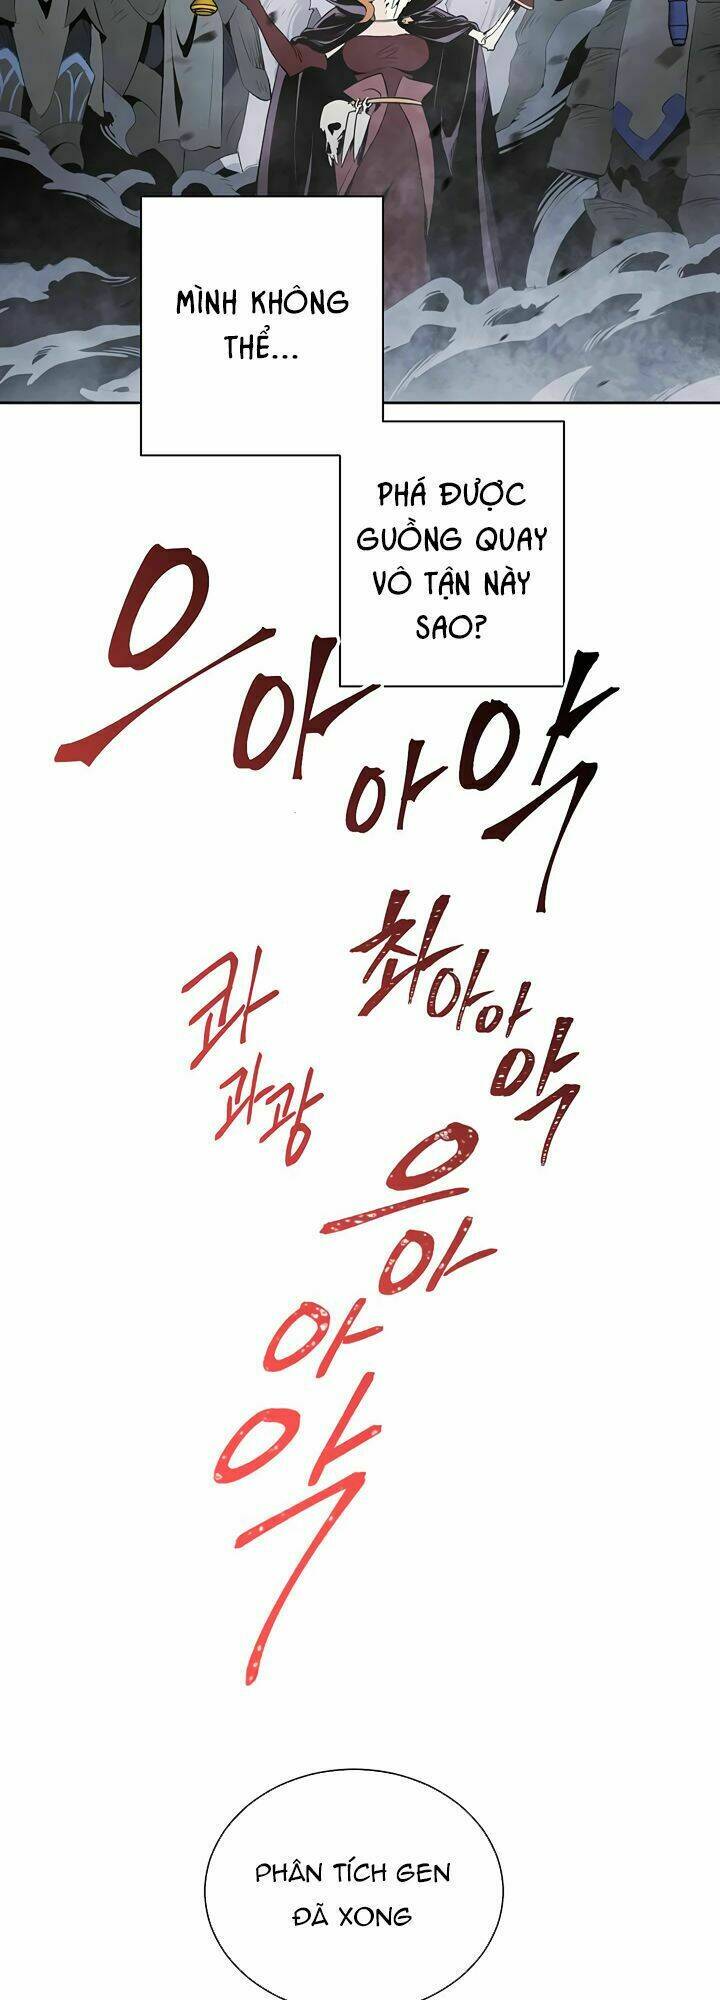 MÌNH KHÔNG
THỂ...
PHÁ ĐƯỢC
GUỒNG QUAY
VÔ TẬN NÀY
SAO?
으아아악
촤아아악
콰과광
으아아악
PHÂN TÍCH GEN
ĐÃ XONG